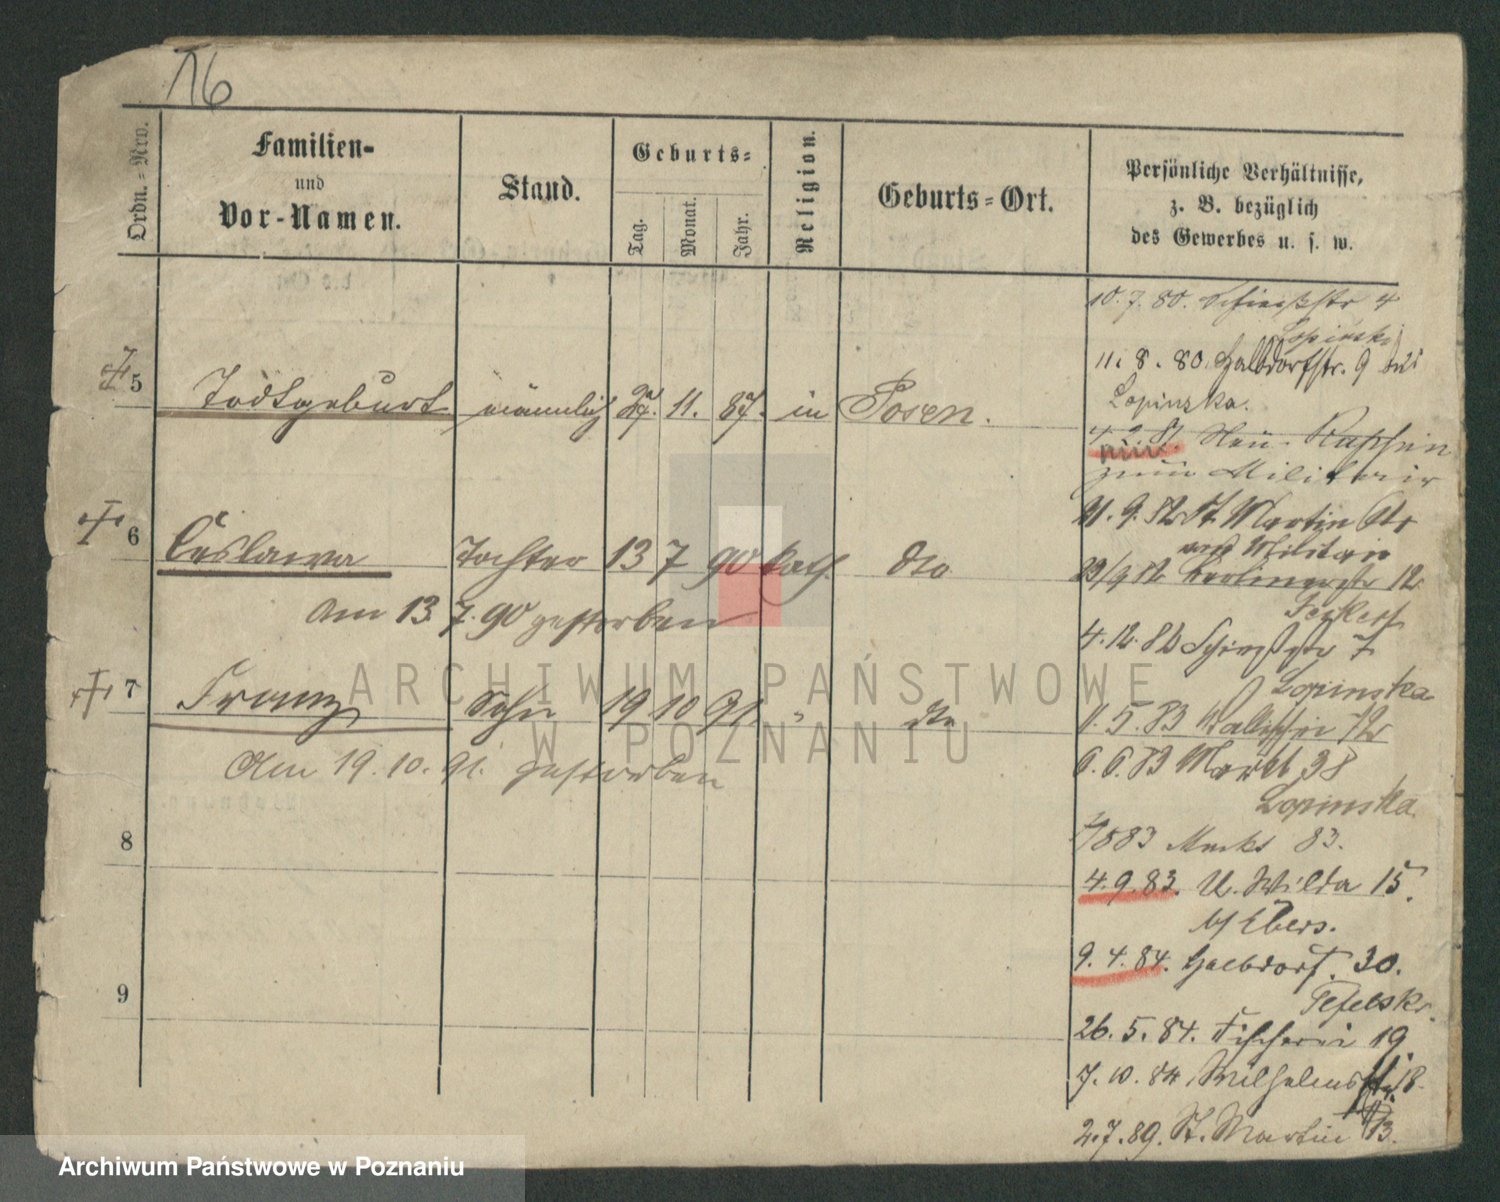 16
Ordn.=Nro.
Familien-
und
Vor-Namen.
Stand.
Geburts=
Tag.
Monat.
Jahr.
Religion.
Geburts=Ort.
Persönliche Verhältnisse,
z. B. bezüglich
des Gewerbes u. s. w.
5 Todtgeburt männlich 27. 11. 87. in Posen.
6 Ceslawa Tochter 13 7 90 kath. dto
am 13. 7. 90 gestorben
7 Franz Sohn 19 10 91 " dto
Am 19. 10. 91. gestorben
8
9
10. 7. 80. Schießstr 4
Lopinska
11. 8. 80. Halbdorfstr. 9 bei
Lopinska.
zum Militair
21. 9. 82 St Martin
Militair
23/9 82 Berlinerstr 12
4. 12. 82 Schießstr 7
Lopinska
1. 5. 83
6. 6. 83 Markt 38
Lopinska
83 Markt 83.
4. 9. 83. U. Wilda 15.
b/ Ebers.
9. 4. 84. Halbdorf. 30.
26. 5. 84. Fischerei 19
7. 10. 84. Wilhelmsstr. 18.
2. 7. 89. St. Martin 13.
ARCHIWUM PAŃSTWOWE
W POZNANIU
Archiwum Państwowe w Poznaniu